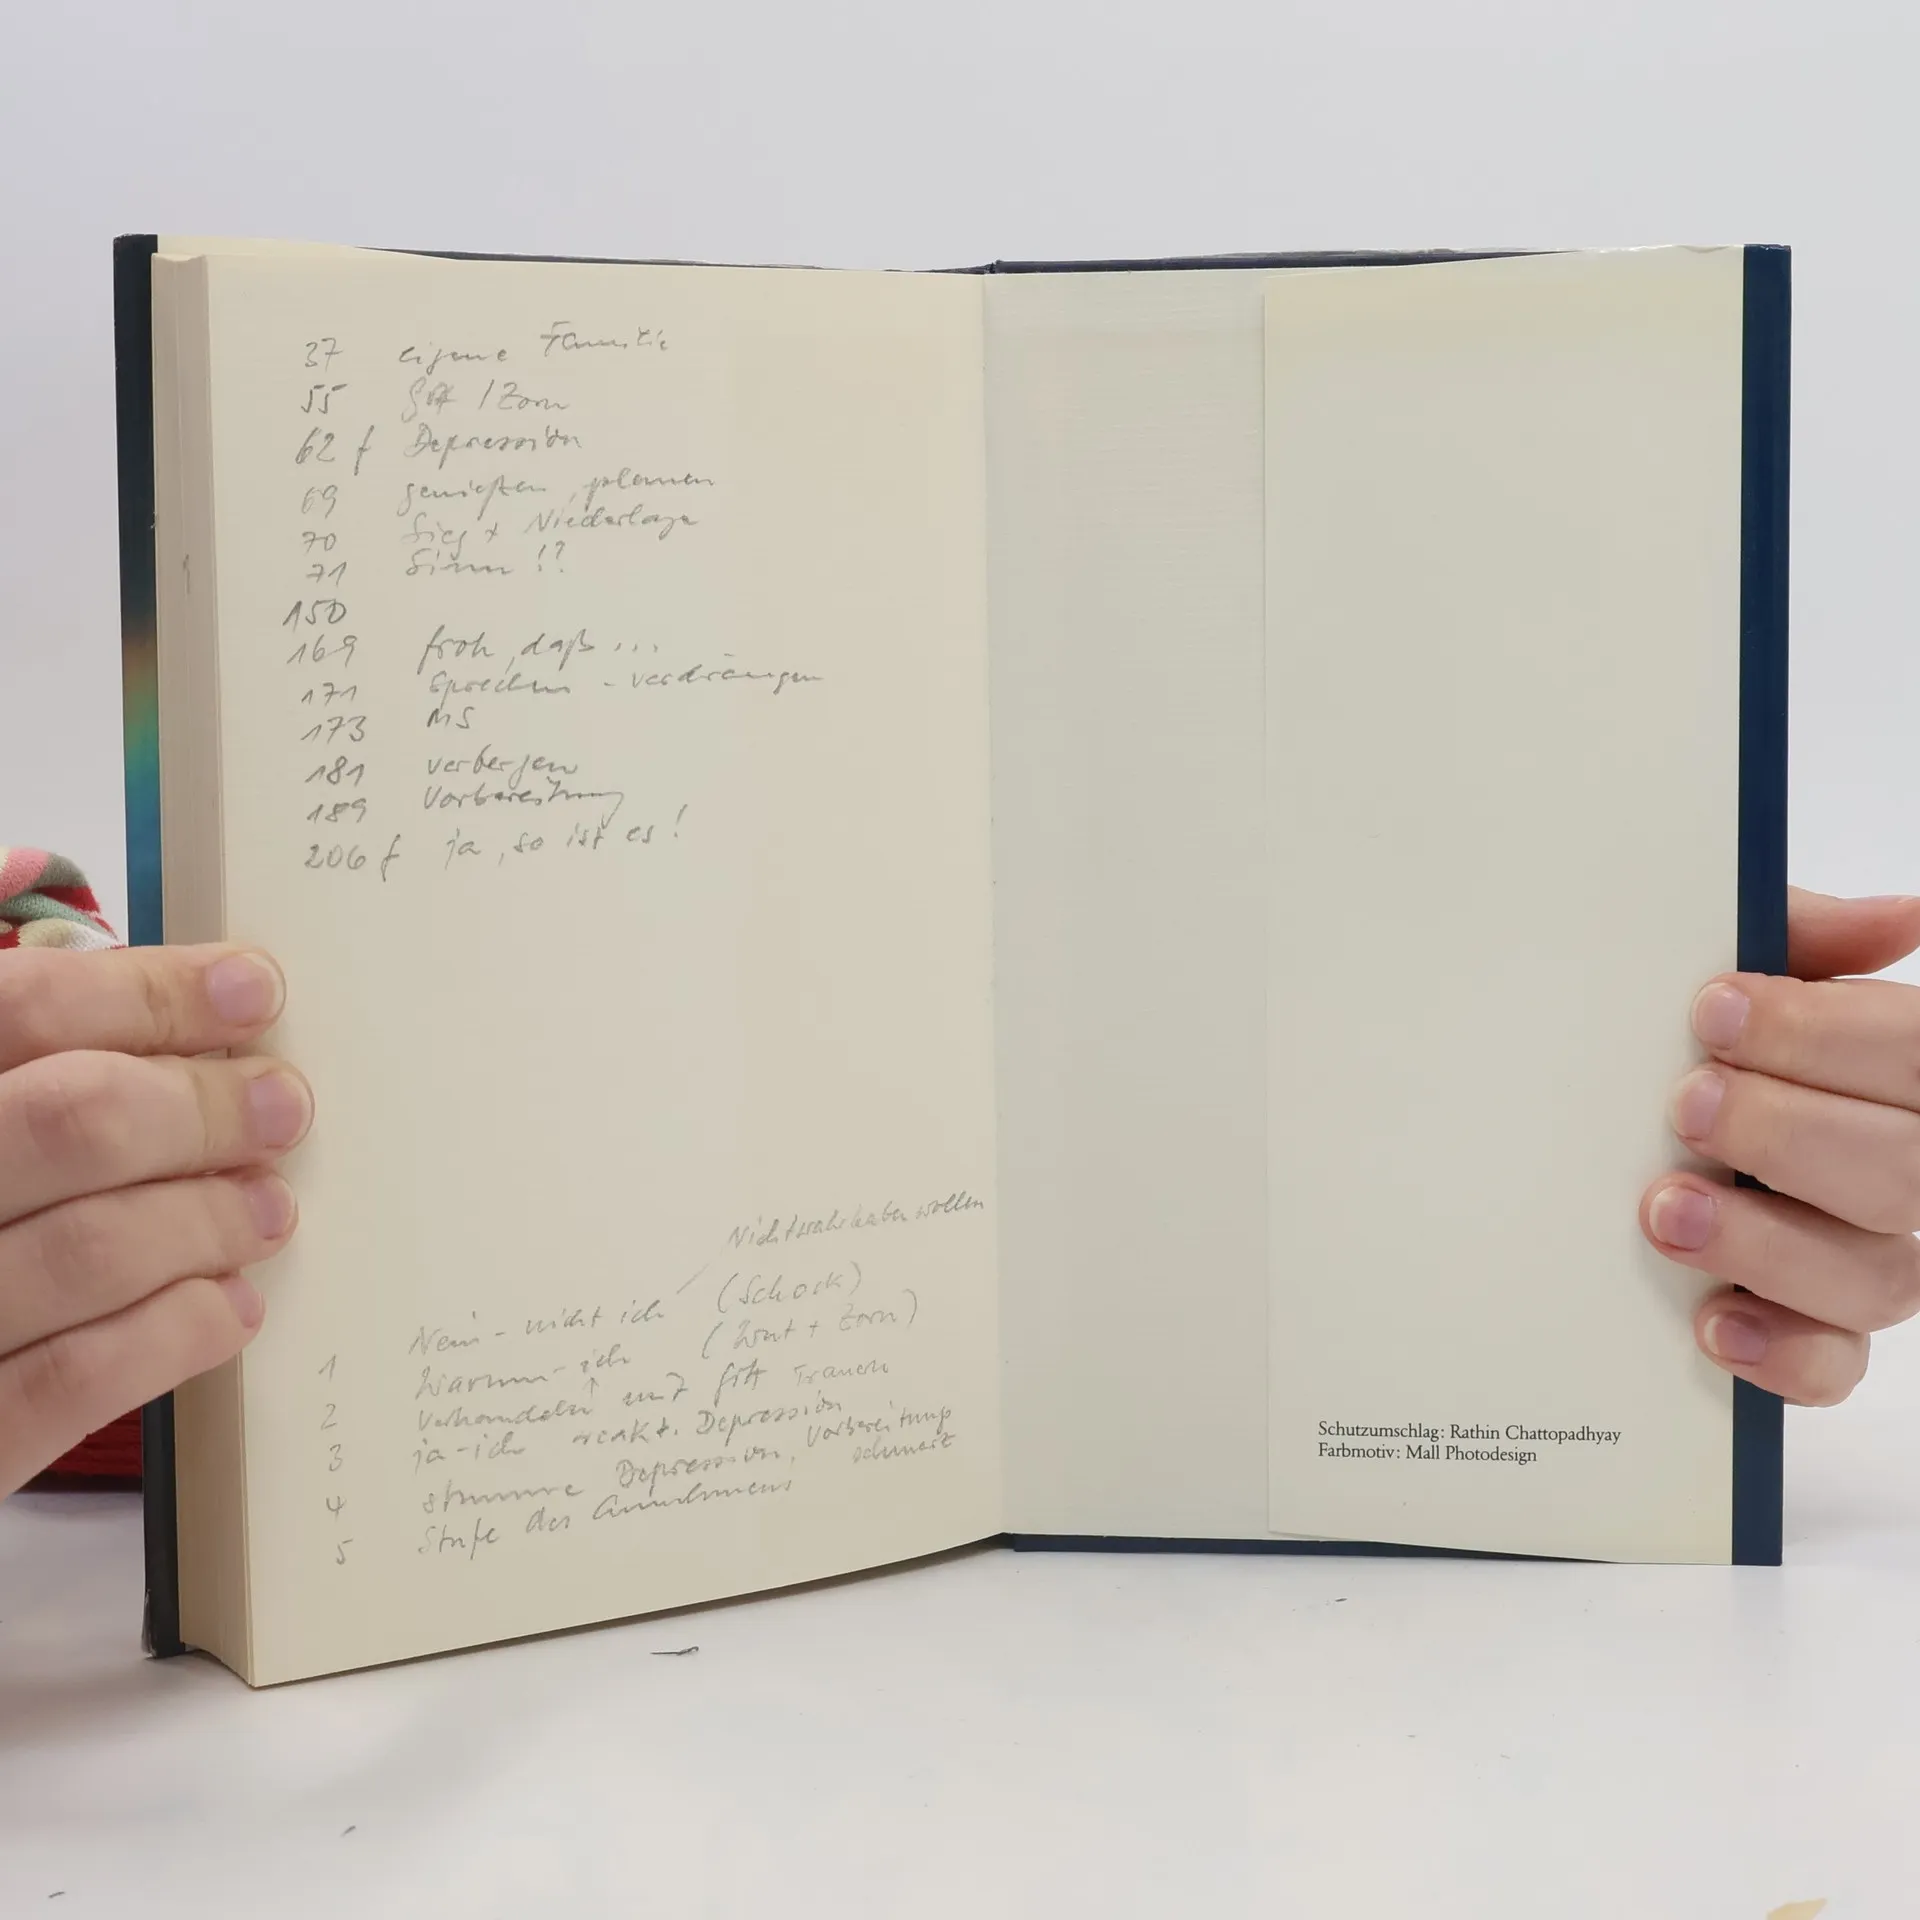 37 eigene Familie
55 Gott / Zorn
62 f Depression
69 genießen, planen
70 Sieg + Niederlage
71 Sinn !?
150
169 froh, daß ...
171 sprechen - verdrängen
173 MS
181 verbergen
189 Vorbereitung
206 f ja, so ist es!
Nichtwahrhaben wollen
1 Nein - nicht ich (Schock)
2 Warum - ich (Wut + Zorn)
3 Verhandeln mit Gott Trauer
4 ja - ich reakt. Depression
stumme Depression, Vorbereitung
schmerz
5 Stufe des Annehmens
Schutzumschlag: Rathin Chattopadhyay
Farbmotiv: Mall Photodesign